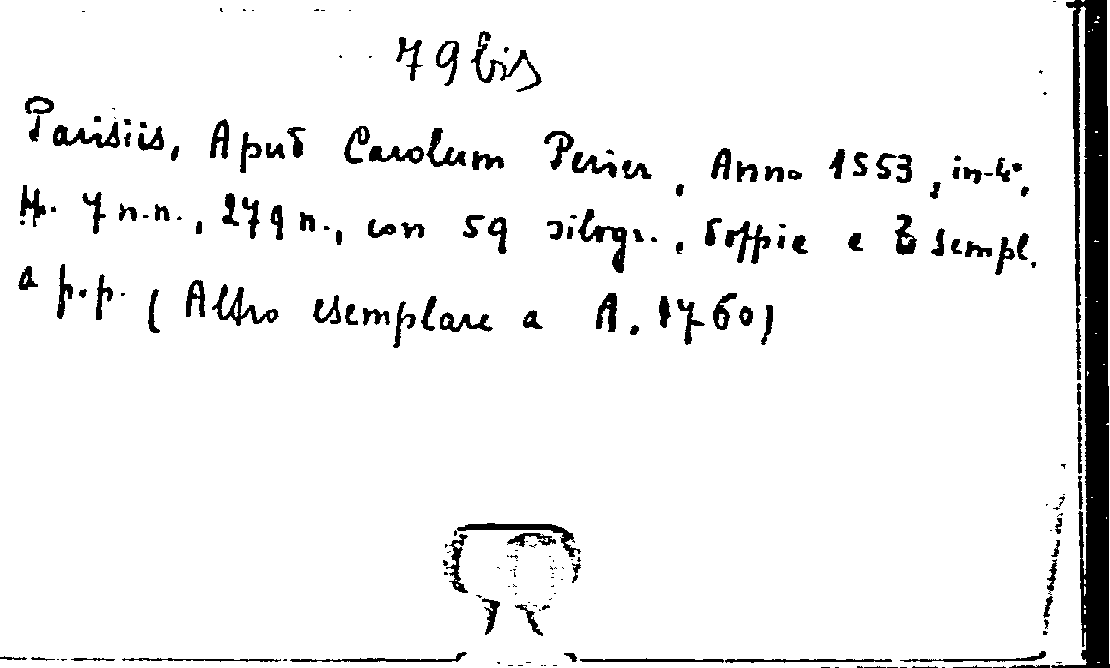 79 bis
Parisiis, Apud Carolum Perier, Anno 1553, in-4°,
ff. 7 n.n., 279 n., con 59 silogr., doppie e sempl.
a p.p. (Altro esemplare a A. 1760)